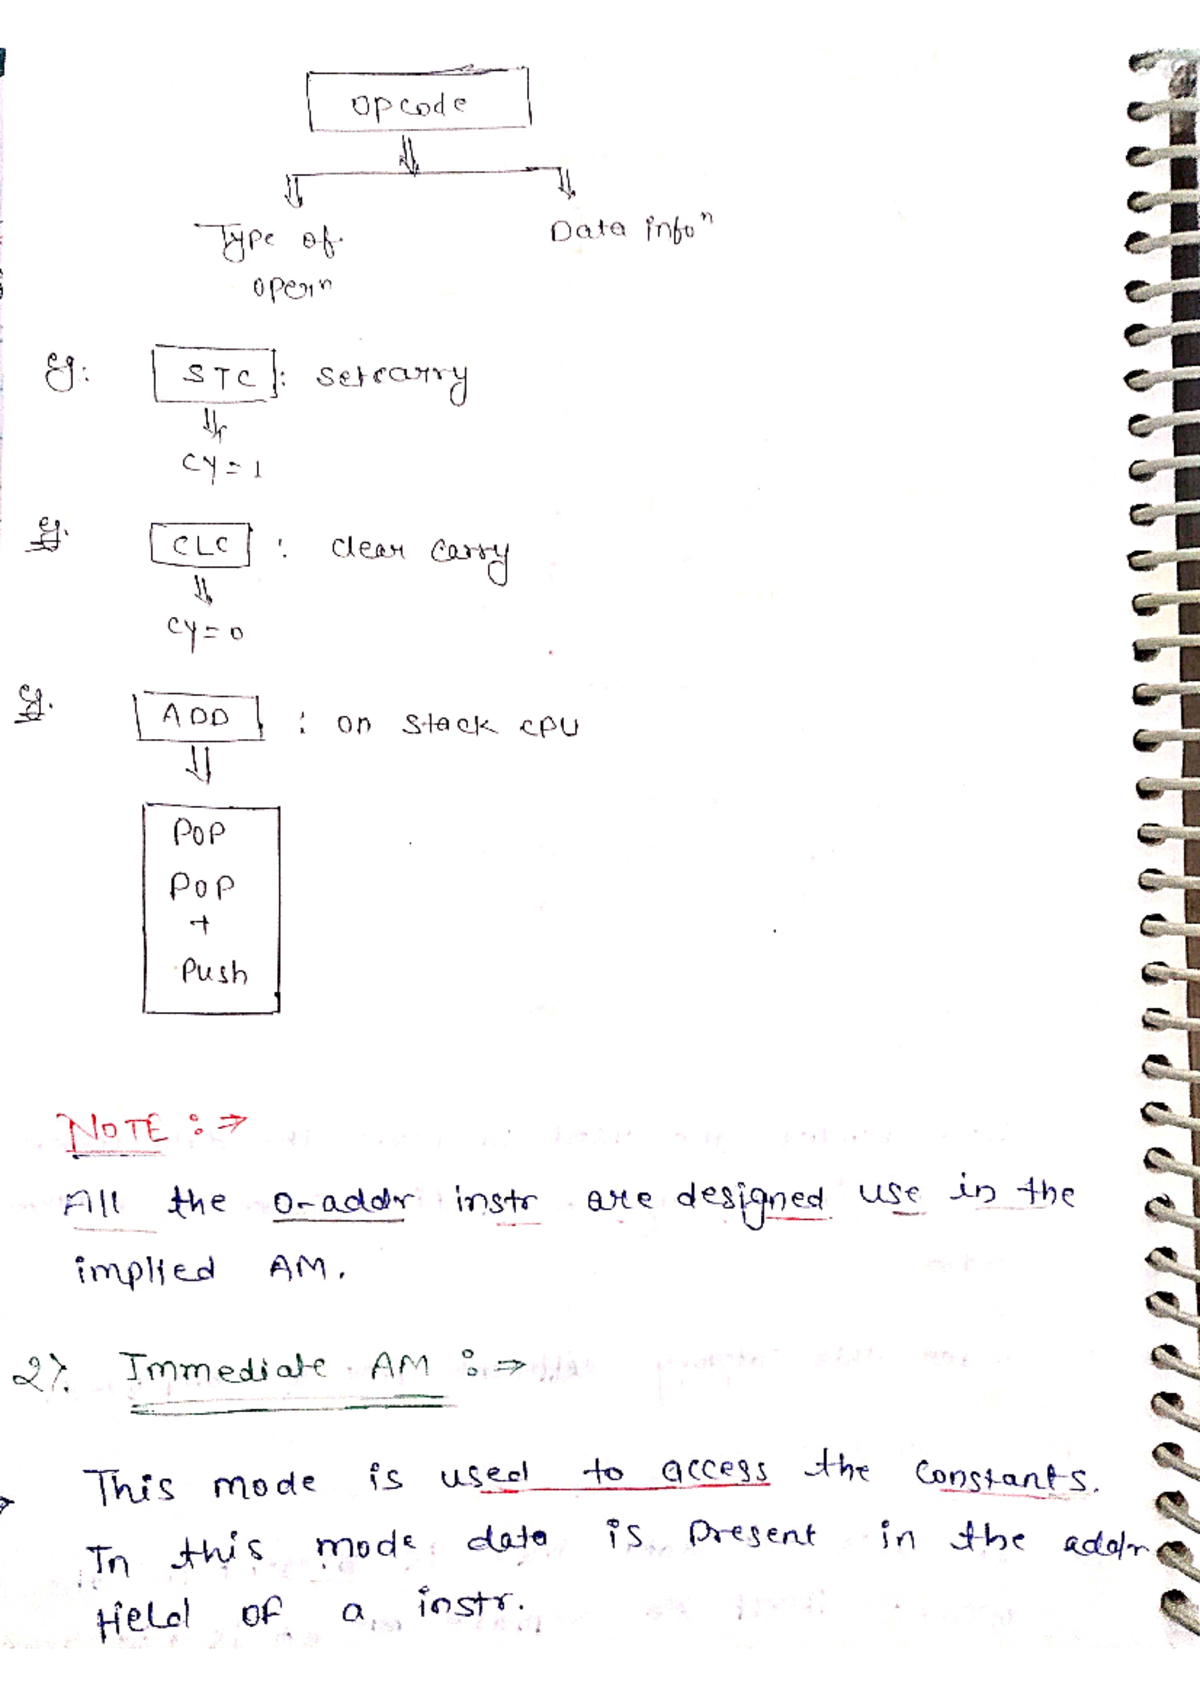 opcode
Type of Data infoⁿ
operⁿ
Eg: STC : setcarry
CY = 1
Eg. CLC : clear carry
CY = 0
Eg. ADD : on stack CPU
POP
POP
+
Push
NOTE :⇒
All the 0-addr instr are designed use in the
implied AM.
2). Immediate AM :⇒
This mode is used to access the constants.
In this mode data is present in the addr
field of a instr.